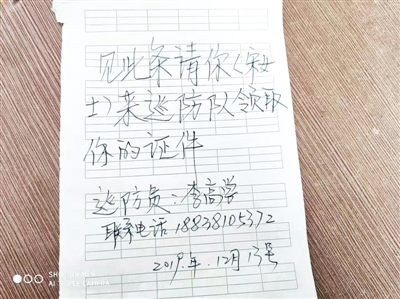 见此条请你(宋女
士)来巡防队领取
你的证件
巡防员:李高学
联系电话 18838105372
2019.年.12月13号
AI
CAMERA